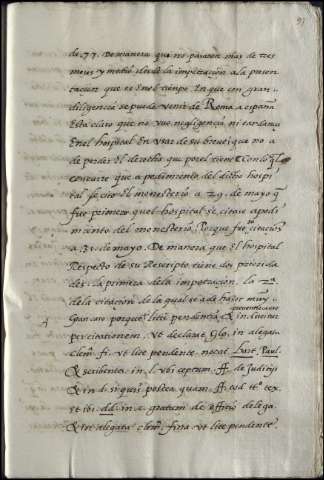 de 77. Demanera que no pasaron mas de tres
meses y medio desde la impetraçion ala presen
taçion que es Enel tienpo En que con gran
diligençia se puede venir de Roma a españa
Esta claro que no vuo negligençia ni tardança
Enel hospital En vsar de su breue que no a
de perder El derecho que por el tiene
Concurre que a pedimiento del dicho hospi
tal se çito El monesterio a 29. de mayo q̃
fue primero quel hospital se çitase a pedi
miento del monesterio. Porque fue çitaçion
a 31. de mayo. De manera que El hospital
Respecto de su Rescripto tiene dos priorida
des. La primera dela impetraçion. la 2ª.
dela çitaçion de la qual se a de hazer muy
porque litis pendentia
per citationem. vt declarat Glo. in
Clem. fi. vt lite pendente. notat Paul.
& scribentes in. l. vbi çeptum. ff. de Judiçijs
& in. l. si quis postea quam. ff. eod. tt.º tex.
et ibi. dd. in. c. gratum de offiçio delega.
& tex. in clem. fina. vt lite pendente.